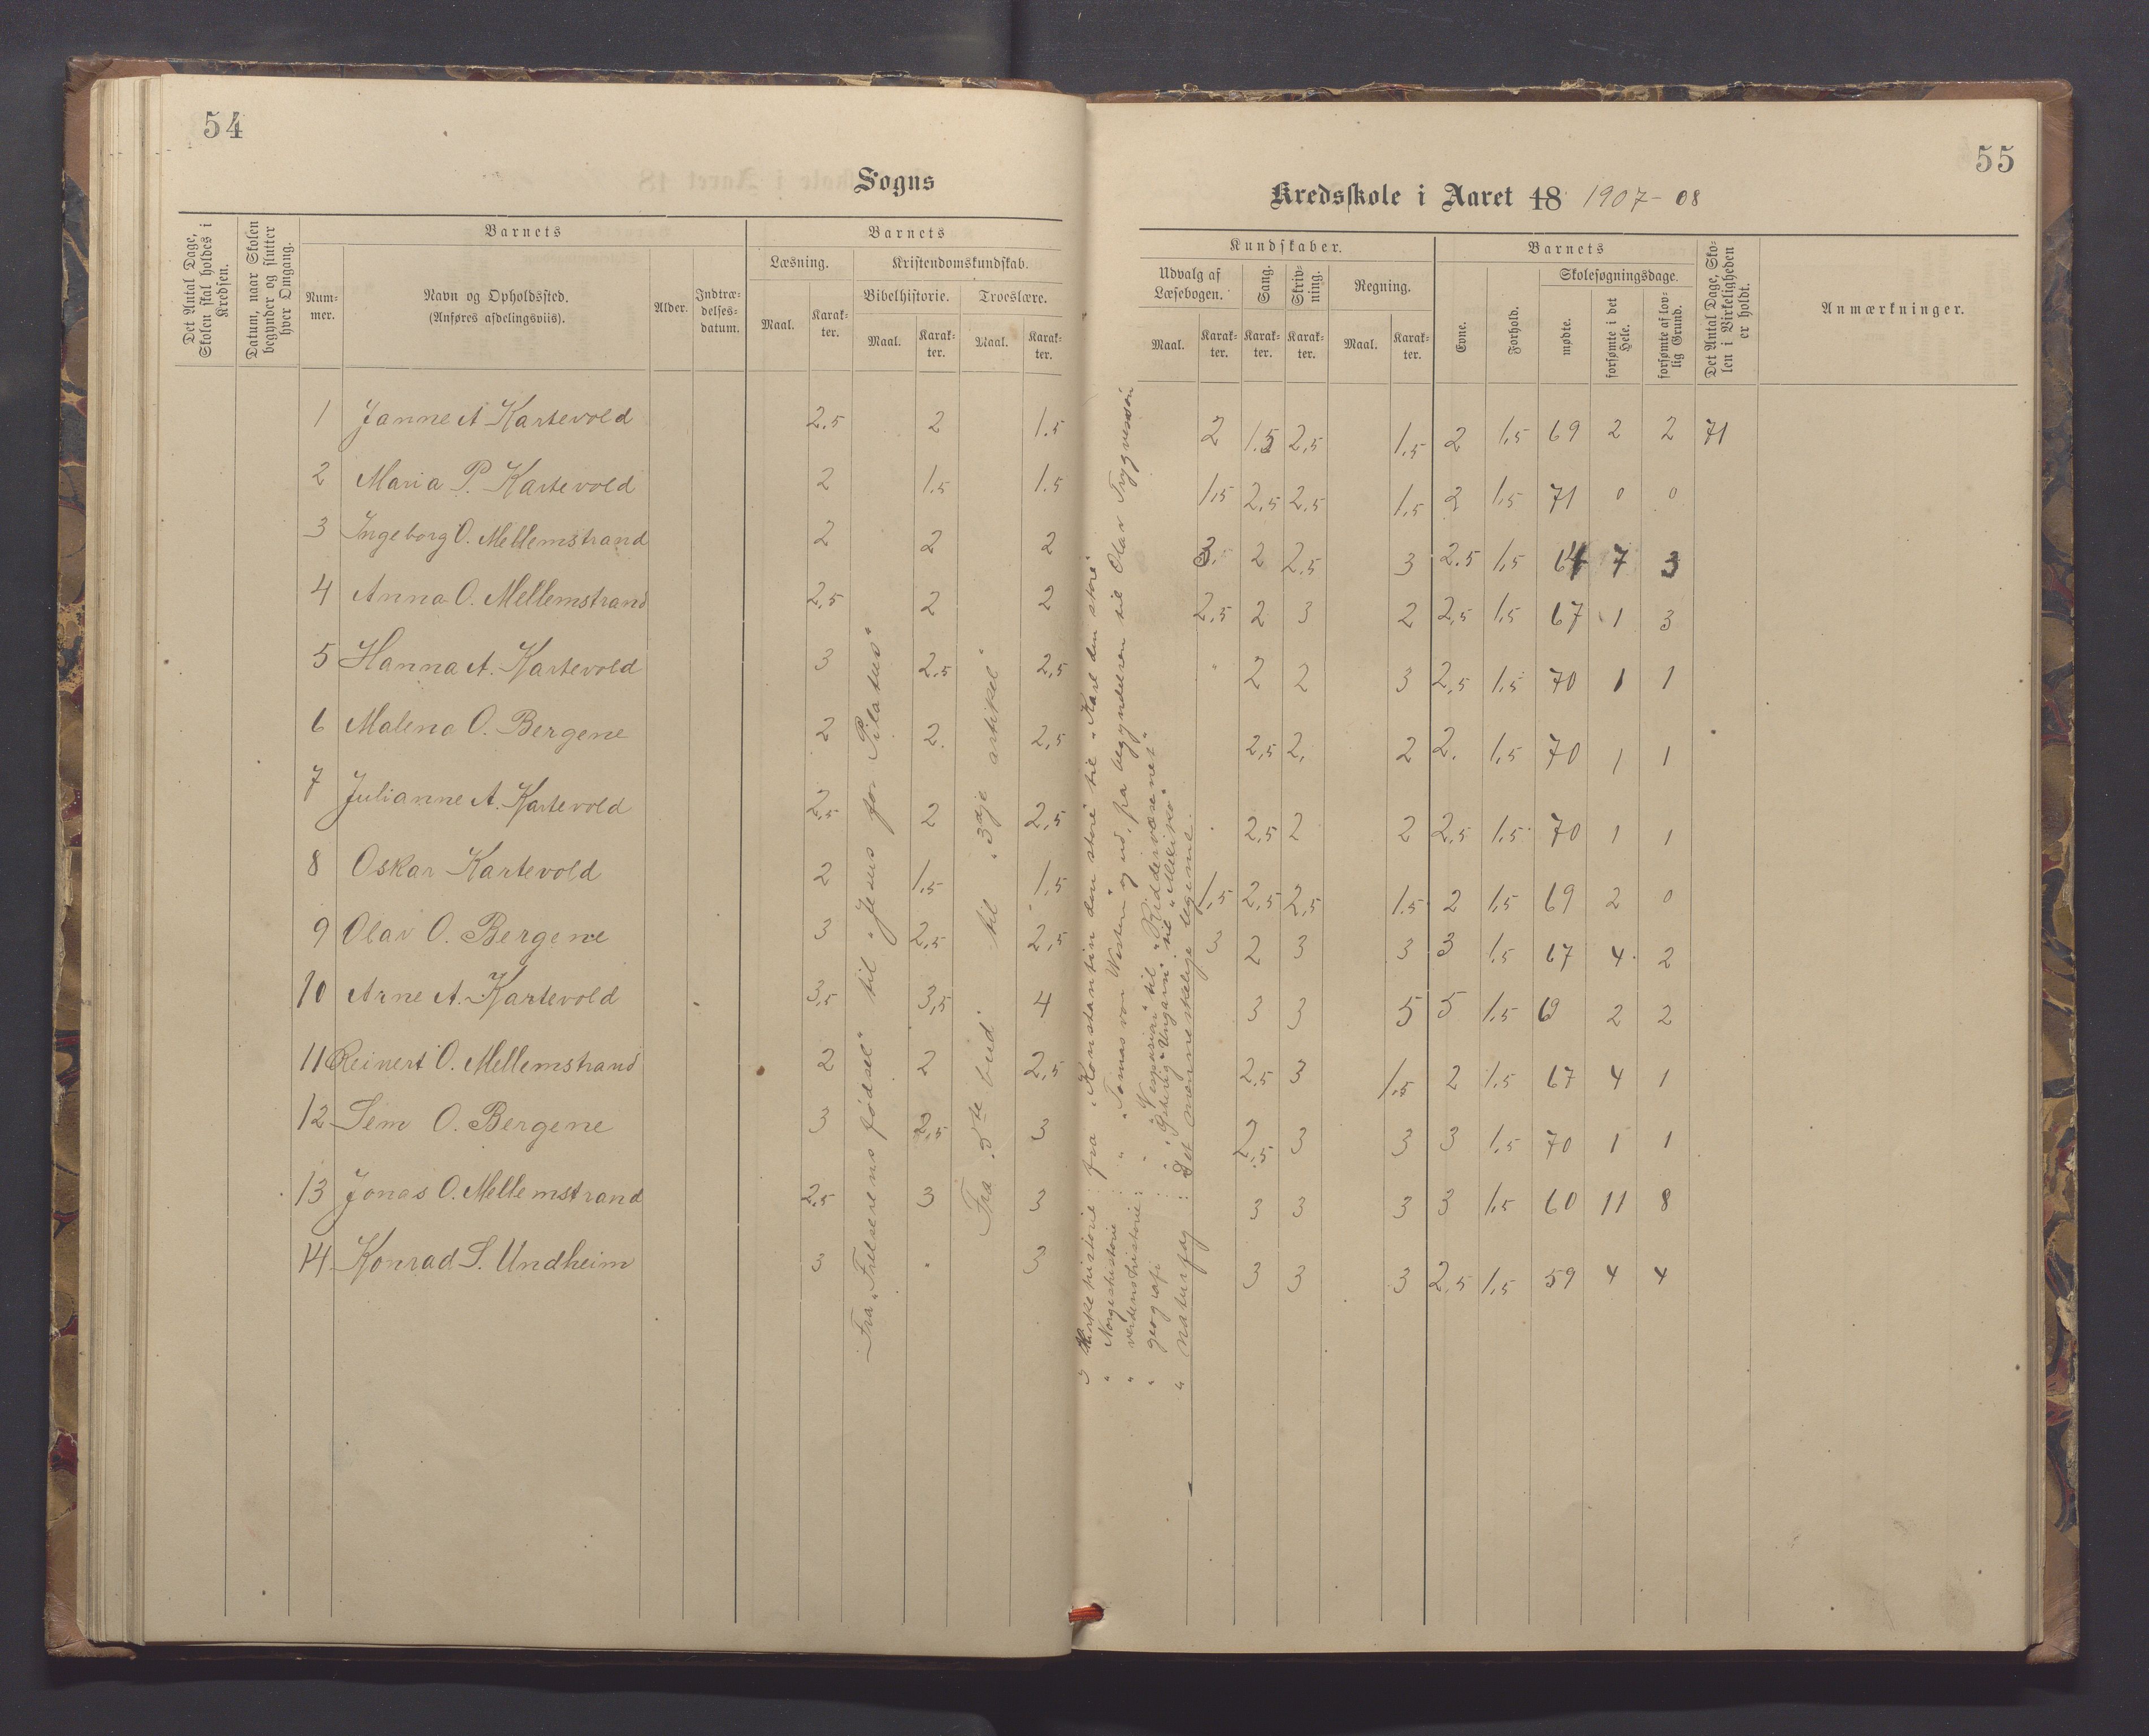 54
Sogns
Det Antal Dage, Skolen skal holdes i Kredsen.
Datum, naar Skolen begynder og slutter hver Omgang.
Barnets
Num-mer.
Navn og Opholdssted.
(Anføres afdelingsviis).
Alder.
Indtræ-delses-datum.
Barnets
Læsning.
Maal.
Karak-ter.
Kristendomskundskab.
Bibelhistorie.
Maal.
Karak-ter.
Troeslære.
Maal.
Karak-ter.
1 Janne A Kartevold 2.5 2 1.5
2 Maria P. Kartevold 2 1.5 1.5
3 Ingeborg O. Mellemstrand 2 2 2
4 Anna O. Mellemstrand 2,5 2 2
5 Hanna A. Kartevold 3 2.5 2,5
6 Malena O. Bergene 2 2. 2,5
7 Julianne A. Kartevold 2,5 2 2,5
8 Oskar Kartevold 2 1,5 1,5
9 Olav O. Bergene 3 2,5 2,5
10 Arne A. Kartevold 3,5 3,5 4
11 Reinert O. Mellemstrand 2 2 2,5
12 Sem O. Bergene 3 2,5 3
13 Jonas O. Mellemstrand 2,5 3 3
14 Konrad S. Undheim 3 . 3
Fra "Frelserens fødsel" til "Jesus for Pilatus"
Fra "5te bud" til "3dje artikel"
55
Kredsskole i Aaret 18 1907-08
Kundskaber.
Udvalg af Læsebogen.
Maal.
Karak-ter.
Sang.
Karak-ter.
Skriv-ning.
Karak-ter.
Regning.
Maal.
Karak-ter.
Barnets
Evne.
Forhold.
Skolesøgningsdage.
mødte.
forsømte i det Hele.
forsømte af lov-lig Grund.
Det Antal Dage, Sko-len i Virkeligheden er holdt.
Anmærkninger.
2 1.5 2,5 1,5 2 1,5 69 2 2 71
1,5 2,5 2,5 1,5 2 1,5 71 0 0
3. 2 2.5 3 2.5 1,5 64 7 3
2,5 2 3 2 2,5 1,5 67 1 3
" 2 2 3 2,5 1,5 70 1 1
2,5 2. 2 2. 1,5 70 1 1
2,5 2 2 2,5 1,5 70 1 1
1,5 2,5 2,5 1.5 2 1,5 69 2 0
3 2 3 3 3 1,5 67 4 2
3 3 5 5 1,5 69 2 2
2.5 3 1,5 2 1,5 67 4 1
2,5 3 3 3 1,5 70 1 1
3 3 3 3 1,5 60 11 8
3 3 3 2,5 1,5 59 4 4
I Kirkehistorie: fra "Konstantin den store" til "Karl den store"
" Norgeshistorie: " "Tomas von Westen" og ud, fra begyndelsen til Olav Trygvessøn
" verdenshistorie: " "Vespasian" til "Ridderværenet"
" geografi: "Østerrig "Ungarn" til "Meksiko"
" naturfag: Det menneskelige legeme.